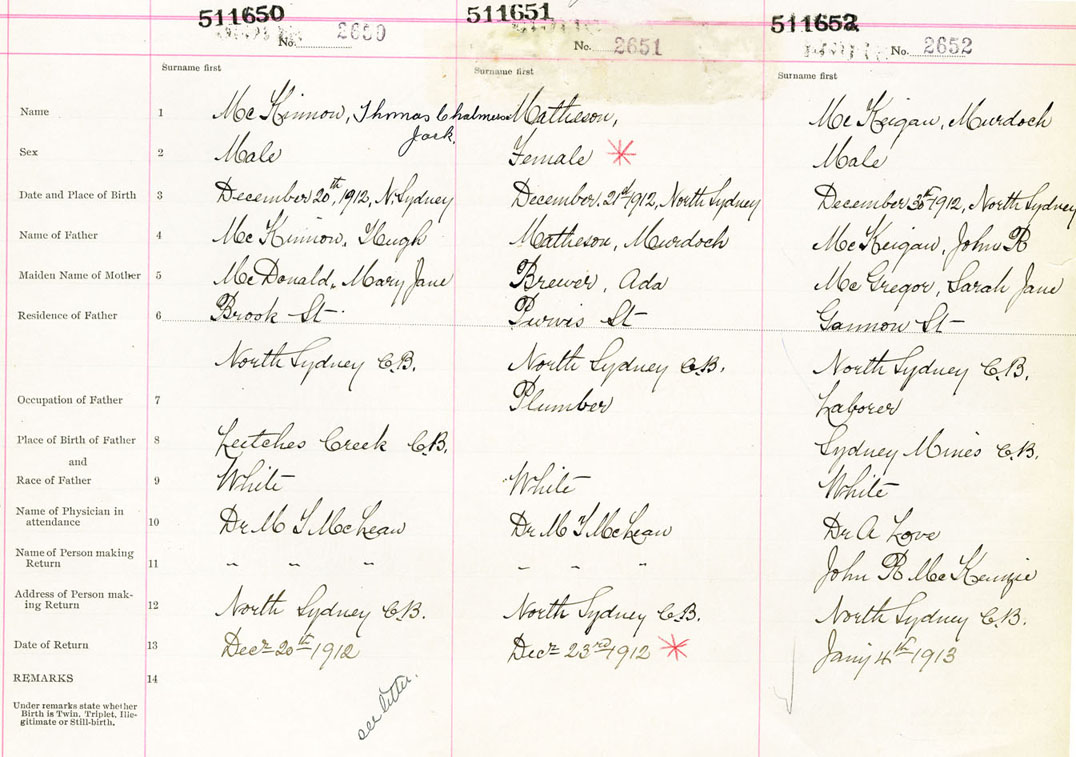 511650 511651 511652
No. 2650 No. 2651 No. 2652
Surname first Surname first Surname first
Name 1 McKinnon, Thomas Chalmers Matheson, McKeigan, Murdoch
Jack.
Sex 2 Male Female * Male
Date and Place of Birth 3 December 20th, 1912, N. Sydney December. 21st 1912, North Sydney December 30th 1912, North Sydney
Name of Father 4 McKinnon, Hugh Matheson, Murdoch McKeigan, John R
Maiden Name of Mother 5 McDonald, Mary Jane Brewer, Ada McGregor, Sarah Jane
Residence of Father 6 Brook St. Purvis St Gannon St
North Sydney C.B. North Sydney C.B. North Sydney C.B.
Occupation of Father 7 Plumber Laborer
Place of Birth of Father 8 Leitches Creek C.B. Sydney Mines C.B.
and
Race of Father 9 White White White
Name of Physician in
attendance 10 Dr M McLean Dr M McLean Dr A Love
Name of Person making
Return 11 " " " " " " John R McKenzie
Address of Person mak-
ing Return 12 North Sydney C.B. North Sydney C.B. North Sydney C.B.
Date of Return 13 Decr 20th 1912 Decr 23rd 1912 * Jany 4th 1913
REMARKS 14
see letter.
Under remarks state whether
Birth is Twin, Triplet, Ille-
gitimate or Still-birth.